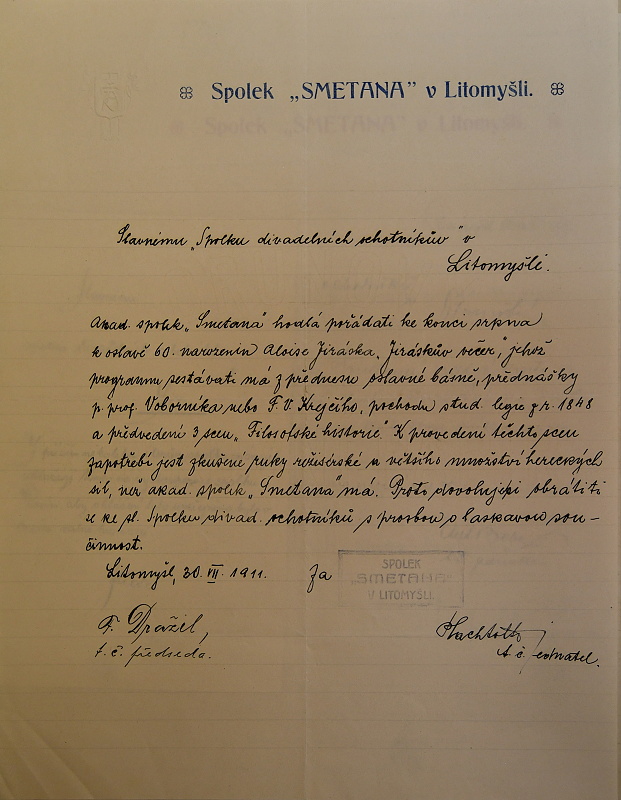 Spolek „SMETANA” v Litomyšli.
Slavnému „Spolku divadelních ochotníkův” v
Litomyšli.
Akad. spolek „Smetana” hodlá pořádati ke konci srpna
k oslavě 60. narozenin Aloise Jiráska „Jiráskův večer”, jehož
programm sestávati má z přednesu oslavné básně, přednášky
p. prof. Voborníka nebo F. V. Krejčího, pochodu stud. legie z r. 1848
a předvedení 3 scen „Filosofské historie”. K provedení těchto scen
zapotřebí jest zkušené ruky režisérské a většího množství hereckých
sil, než akad. spolek „Smetana” má. Proto dovoluje si obrátiti
se ke sl. Spolku divad. ochotníků s prosbou o laskavou sou-
činnost.
Litomyšl, 30. VII. 1911. Za
SPOLEK
„SMETANA”
V LITOMYŠLI.
F. Dražil,
t. č. předseda.
t. č. jednatel.